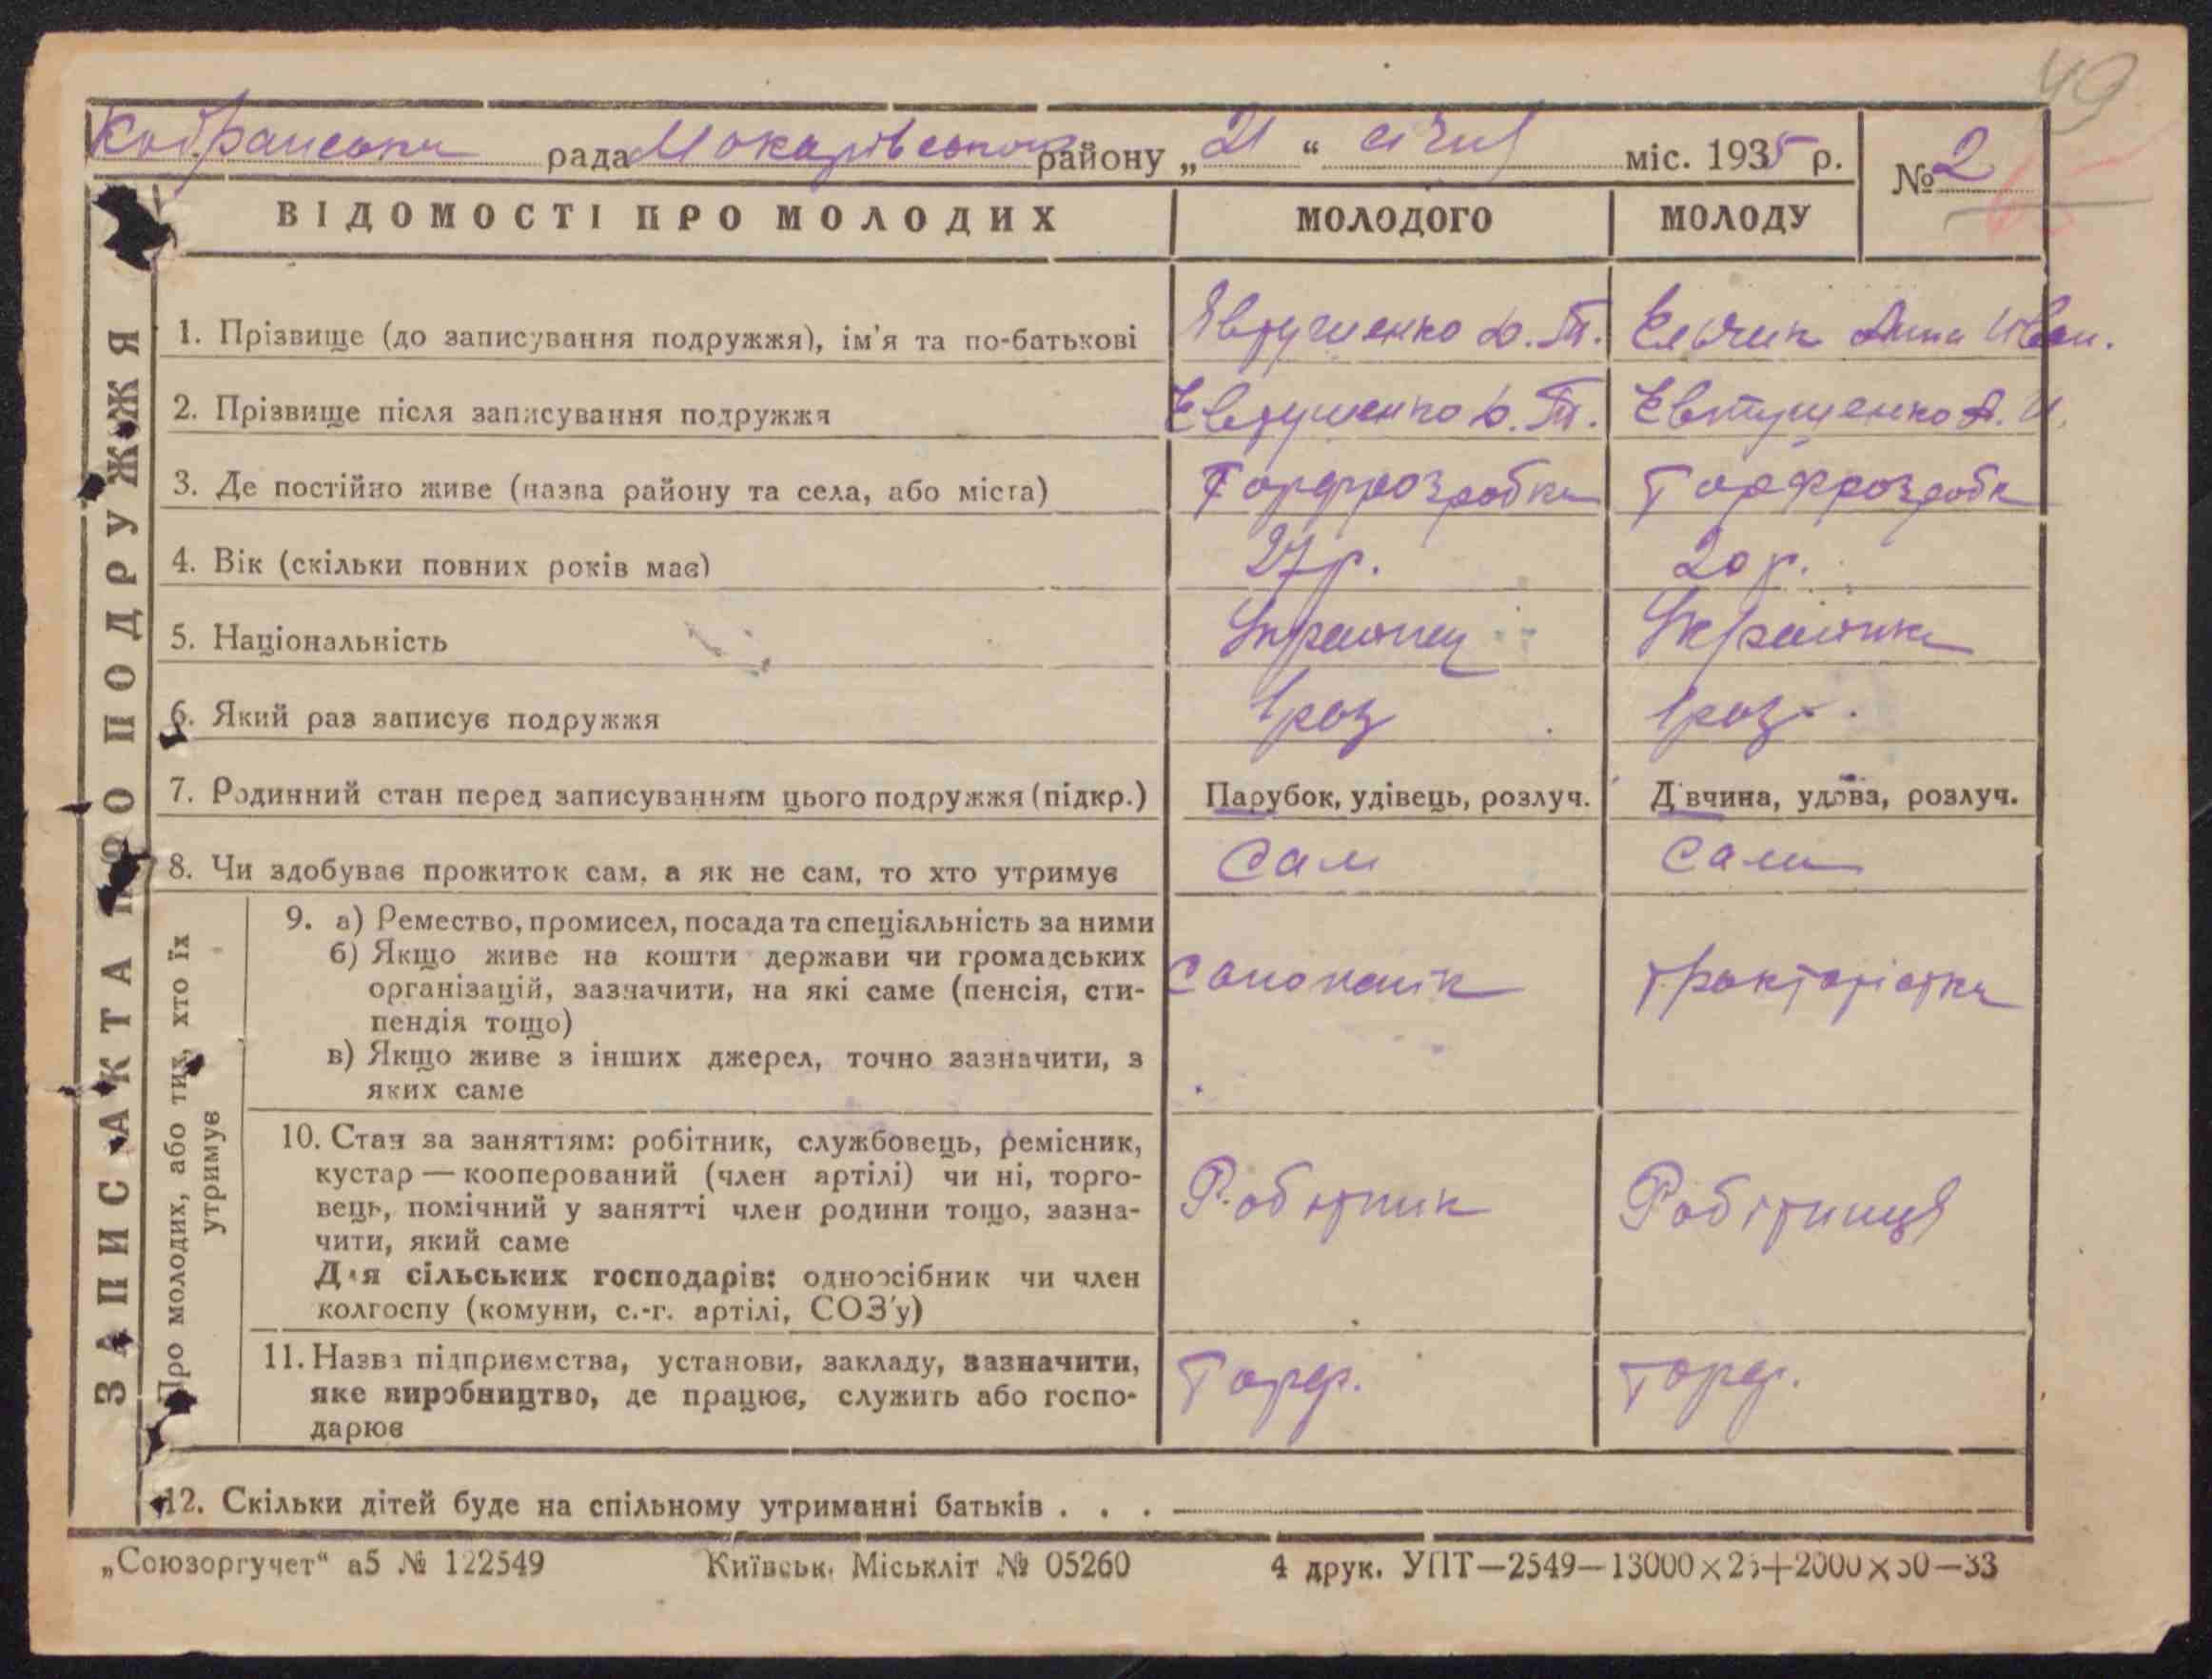 49
Кобранська рада Макарівського району „21“ січня міс. 1935 р. № 2
ВІДОМОСТІ ПРО МОЛОДИХ МОЛОДОГО МОЛОДУ
ЗАПИС АКТА ПРО ПОДРУЖЖЯ
1. Прізвище (до записування подружжя), ім'я та по-батькові Явтушенко Т. Ельчик Анна Иван.
2. Прізвище після записування подружжя Евтушенко Т. Евтушенко А. И.
3. Де постійно живе (назва району та села, або міста) Торфрозробка Торфрозробк
4. Вік (скільки повних років має) 27 р. 20 р.
5. Національність Украинец Украинка
6. Який раз записує подружжя 1 раз 1 раз
7. Родинний стан перед записуванням цього подружжя (підкр.) Парубок, удівець, розлуч. Дівчина, удова, розлуч.
8. Чи здобуває прожиток сам, а як не сам, то хто утримує Сам Сама
Про молодих, або тих, хто їх утримує
9. а) Ремество, промисел, посада та спеціальність за ними
б) Якщо живе на кошти держави чи громадських
організацій, зазначити, на які саме (пенсія, сти-
пендія тощо) сапожнік трактарістка
в) Якщо живе з інших джерел, точно зазначити, з
яких саме
10. Стан за заняттям: робітник, службовець, ремісник,
кустар — кооперований (член артілі) чи ні, торго-
вець, помічний у занятті член родини тощо, зазна- Робітник Робітниця
чити, який саме
Для сільських господарів: одноосібник чи член
колгоспу (комуни, с.-г. артілі, СОЗ'у)
11. Назва підприємства, установи, закладу, зазначити,
яке виробництво, де працює, служить або госпо- Торф. Торф.
дарює
12. Скільки дітей буде на спільному утриманні батьків . . .
„Союзоргучет“ а5 № 122549 Київськ. Міськліт № 05260 4 друк. УПТ—2549—13000×25+2000×50—33